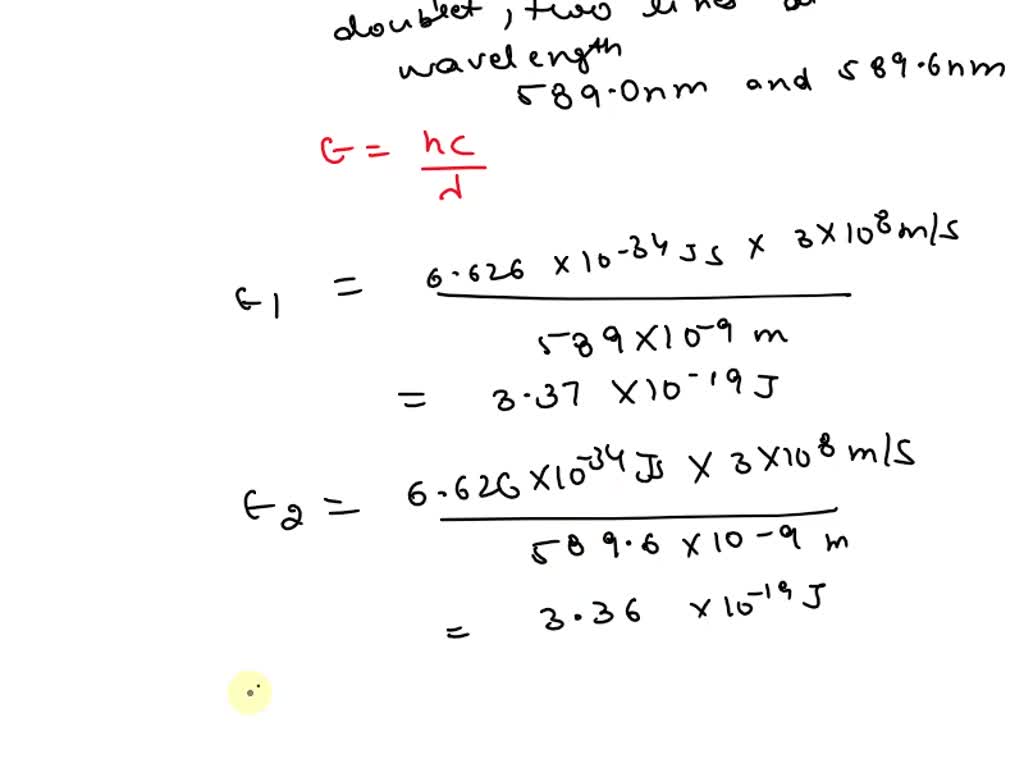 doublet, two lines
wavelength
589.0nm and 589.6nm
E = hc/λ
E1 = 6.626 × 10-34 Js × 3×10^8 m/s
589×10-9 m
= 3.37 ×10-19 J
E2 = 6.626×10-34 Js × 3×10^8 m/s
589.6 ×10-9 m
= 3.36 ×10-19 J